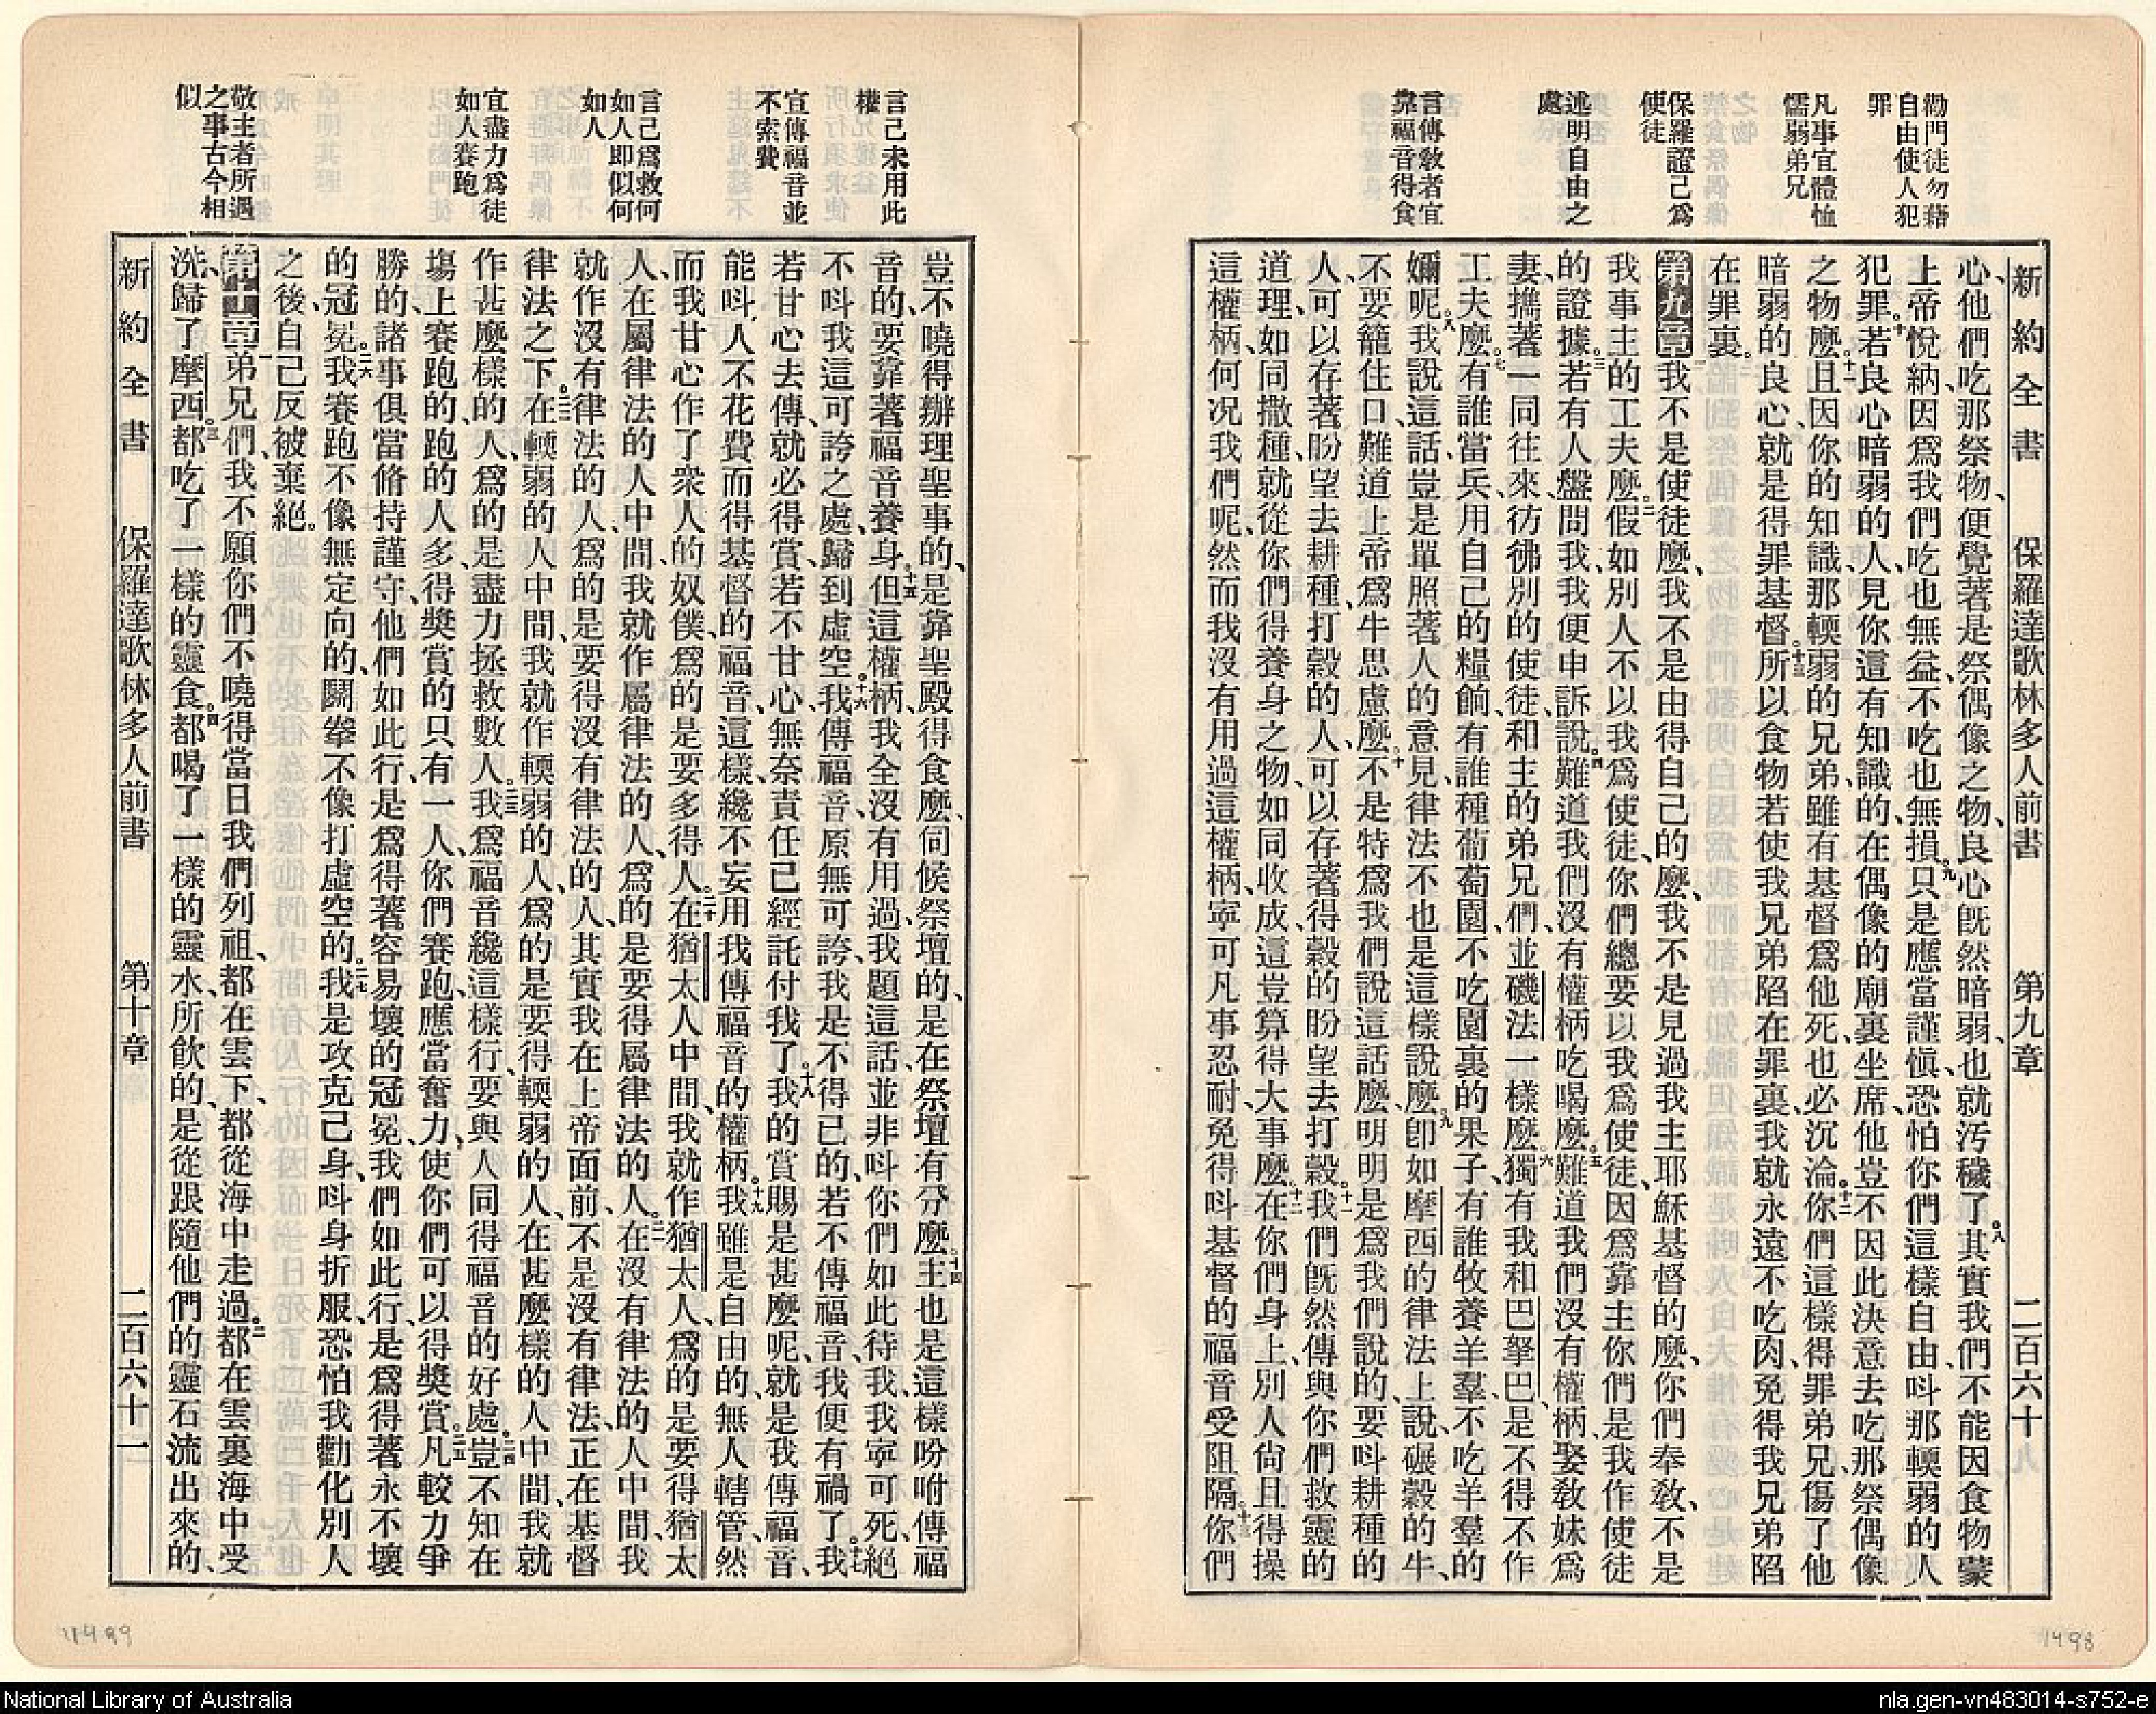 勸門徒勿藉
自由使人犯
罪
凡事宜體恤
懦弱弟兄
保羅證己爲
使徒
述明自由之
處
言傳敎者宜
靠福音得食
新約全書 保羅達歌林多人前書 第九章 二百六十
心、他們吃那祭物、便覺著是祭偶像之物、良心旣然暗弱、也就汚穢了。八其實我們不能因食物蒙
上帝悅納、因爲我們吃也無益、不吃也無損。九只是應當謹愼、恐怕你們這樣自由、呌那輭弱的人
犯罪。十若良心暗弱的人、見你這有知識的、在偶像的廟裏坐席、他豈不因此決意去吃那祭偶像
之物麼。十一且因你的知識、那輭弱的兄弟、雖有基督爲他死、也必沉淪。十二你們這樣得罪弟兄、傷了他
暗弱的良心、就是得罪基督。十三所以食物若使我兄弟陷在罪裏、我就永遠不吃肉、免得我兄弟陷
在罪裏。
第九章一我不是使徒麼、我不是由得自己的麼、我不是見過我主耶穌基督的麼、你們奉敎、不是
我事主的工夫麼。二假如別人不以我爲使徒、你們總要以我爲使徒、因爲靠主你們是我作使徒
的證據。三若有人盤問我、我便申訴說。四難道我們沒有權柄吃喝麼。五難道我們沒有權柄、娶敎妹爲
妻、攜著一同往來、彷彿別的使徒、和主的弟兄們、並磯法一樣麼。六獨有我和巴拏巴、是不得不作
工夫麼。七有誰當兵、用自己的糧餉、有誰種葡萄園、不吃園裏的果子、有誰牧養羊羣、不吃羊羣的
嬭呢。八我說這話、豈是單照著人的意見、律法不也是這樣說麼。九卽如摩西的律法上說、碾穀的牛、
不要籠住口、難道上帝爲牛思慮麼。十不是特爲我們說這話麼、明明是爲我們說的、要呌耕種的
人、可以存著盼望去耕種、打穀的人、可以存著得穀的盼望去打穀。十一我們旣然傳與你們救靈的
道理、如同撒種、就從你們得養身之物、如同收成、這豈算得大事麼。十二在你們身上、別人尙且得操
這權柄、何况我們呢、然而我沒有用過這權柄、寧可凡事忍耐、免得呌基督的福音受阻隔。十三你們
言己未用此
權
宣傳福音並
不索費
言己爲救何
如人即似何
如人
宜盡力爲徒
如人賽跑
敬主者所遇
之事古今相
似
豈不曉得辦理聖事的、是靠聖殿得食麼、伺候祭壇的、是在祭壇有分麼。十四主也是這樣吩咐、傳福
音的、要靠著福音養身。十五但這權柄、我全沒有用過、我題這話、並非呌你們如此待我、我寧可死、絕
不呌我這可誇之處、歸到虛空。十六我傳福音、原無可誇、我是不得已的、若不傳福音、我便有禍了。十七我
若甘心去傳、就必得賞、若不甘心、無奈責任已經託付我了。十八我的賞賜是甚麼呢、就是我傳福音、
能呌人不花費而得基督的福音、這樣纔不妄用我傳福音的權柄。十九我雖是自由的、無人轄管、然
而我甘心作了衆人的奴僕、爲的是要多得人。二十在猶太人中間、我就作猶太人、爲的是要得猶太
人、在屬律法的人中間、我就作屬律法的人、爲的是要得屬律法的人。二一在沒有律法的人中間、我
就作沒有律法的人、爲的是要得沒有律法的人、其實我在上帝面前、不是沒有律法、正在基督
律法之下。二二在輭弱的人中間、我就作輭弱的人、爲的是要得輭弱的人、在甚麼樣的人中間、我就
作甚麼樣的人、爲的是盡力拯救數人。二三我爲福音纔這樣行、要與人同得福音的好處。二四豈不知在
塲上賽跑的、跑的人多、得獎賞的只有一人、你們賽跑、應當奮力、使你們可以得獎賞。二五凡較力爭
勝的、諸事俱當脩持謹守、他們如此行、是爲得著容易壞的冠冕、我們如此行、是爲得著永不壞
的冠冕。二六我賽跑不像無定向的、鬭拳不像打虛空的。二七我是攻克己身、呌身折服、恐怕我勸化別人
之後、自己反被棄絕。
第十章一弟兄們、我不願你們不曉得、當日我們列祖、都在雲下、都從海中走過。二都在雲裏海中受
洗、歸了摩西。三都吃了一樣的靈食。四都喝了一樣的靈水、所飲的是從跟隨他們的靈石流出來的、
新約全書 保羅達歌林多人前書 第十章 二百六十一
11499
1498
National Library of Australia
nla.gen-vn483014-s752-e